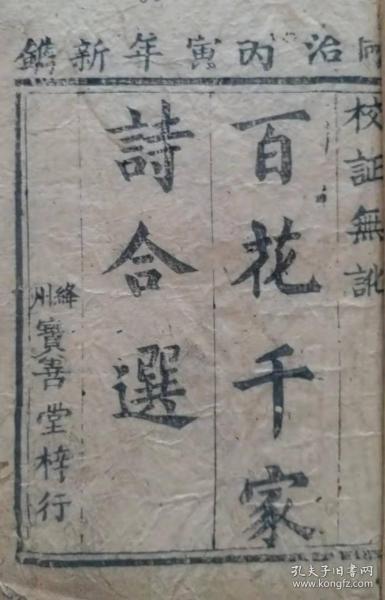 同治丙寅年新鐫
校証無訛
百花千家
詩合選
絳州寶善堂梓行
孔夫子旧书网